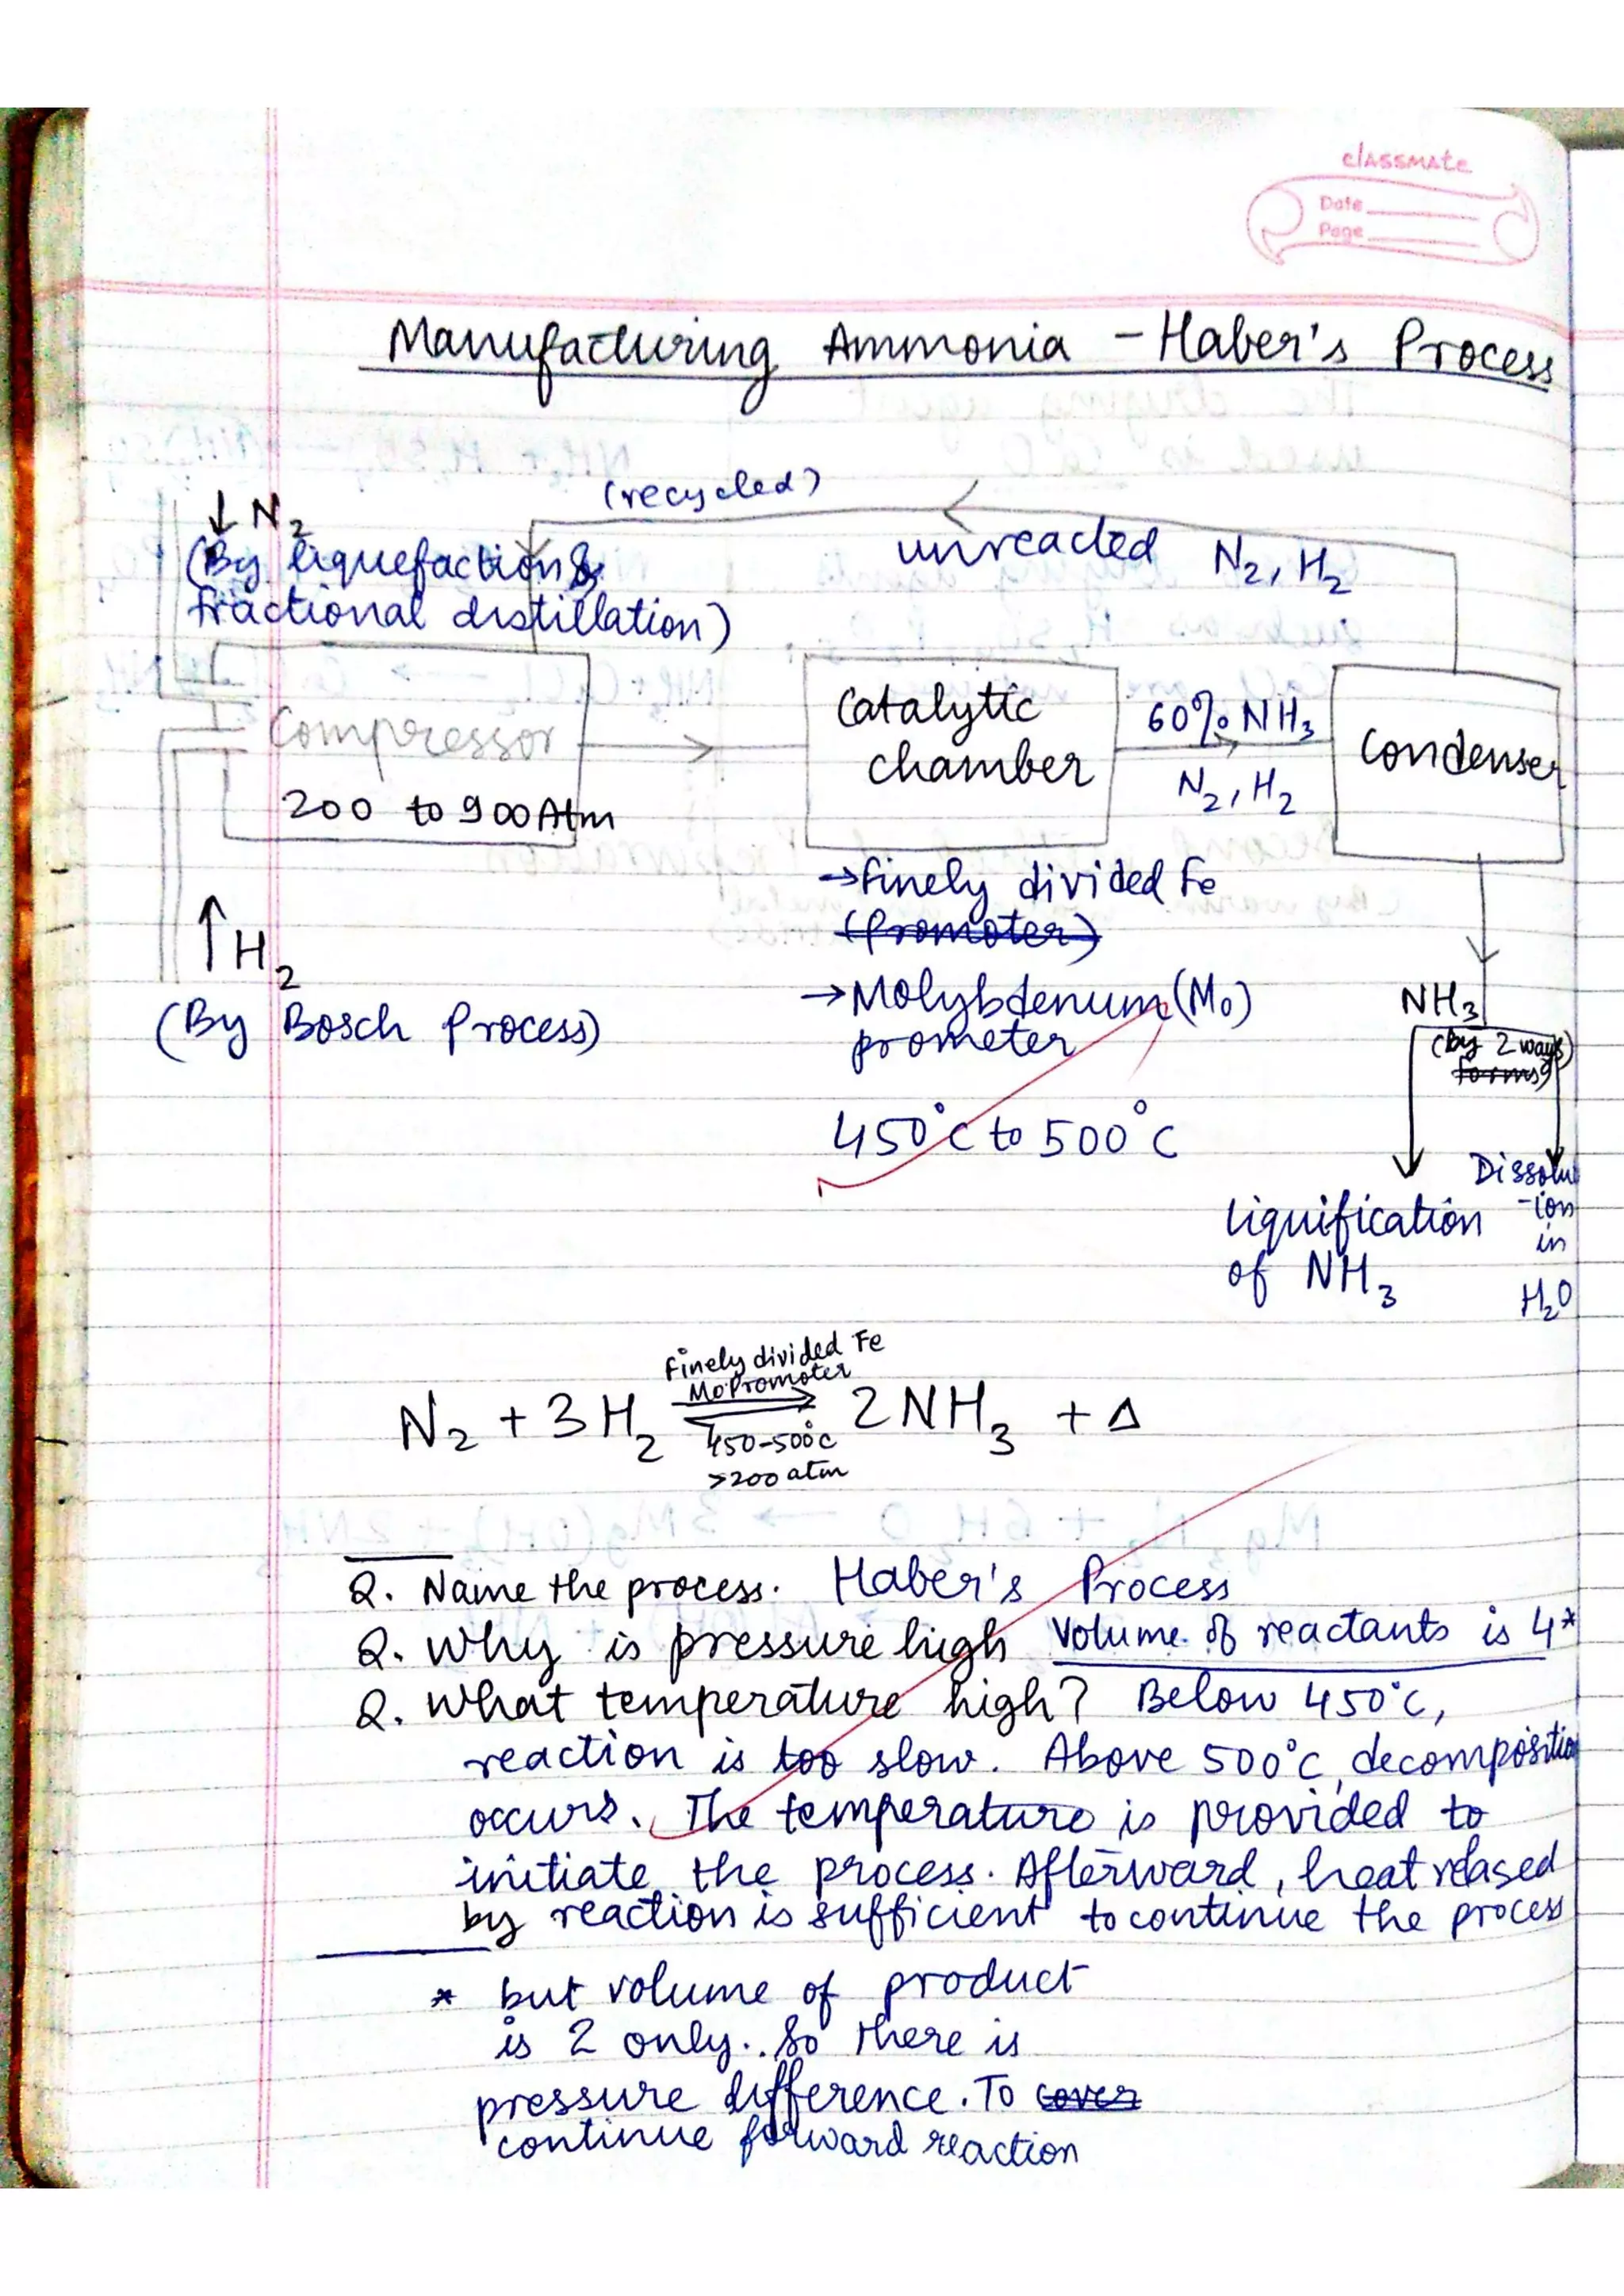 classmate
Date
Page
Manufacturing Ammonia - Haber's Process
(recycled)
↓ N₂
unreacted N₂, H₂
(By liquefaction &
fractional distillation)
Compressor
200 to 900 Atm
Catalytic
chamber
60% NH₃
N₂, H₂
Condenser
→ Finely divided Fe
(Promoter)
→ Molybdenum (Mo)
prometer
450°C to 500°C
↑ H₂
(By Bosch Process)
NH₃
(by 2 ways)
forms)
liquification
of NH₃
Dissolut
-ion
in
H₂O
Finely divided Fe
Mo Promoter
N₂ + 3H₂ ⇌ 2NH₃ + Δ
450-500°C
>200 atm
Q. Name the process. Haber's Process
Q. Why is pressure high Volume of reactants is 4*
Q. What temperature high? Below 450°C,
reaction is too slow. Above 500°C, decomposition
occurs. The temperature is provided to
initiate the process. Afterward, heat relased
by reaction is sufficient to continue the process
* but volume of product
is 2 only.. So there is
pressure difference. To cover
continue forward reaction